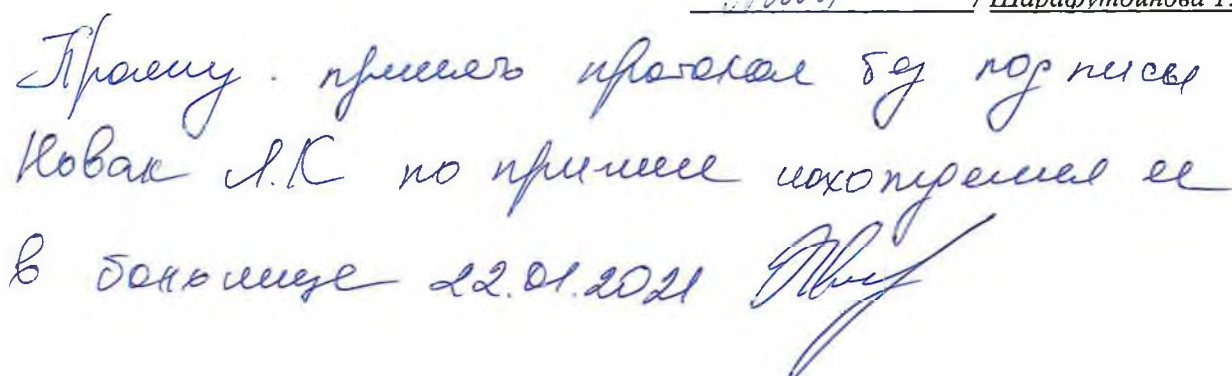 / Шарафутдинова Г.
Прошу принять протокол без подписи
Новак Л.К по причине нахождения ее
в больнице 22.01.2021